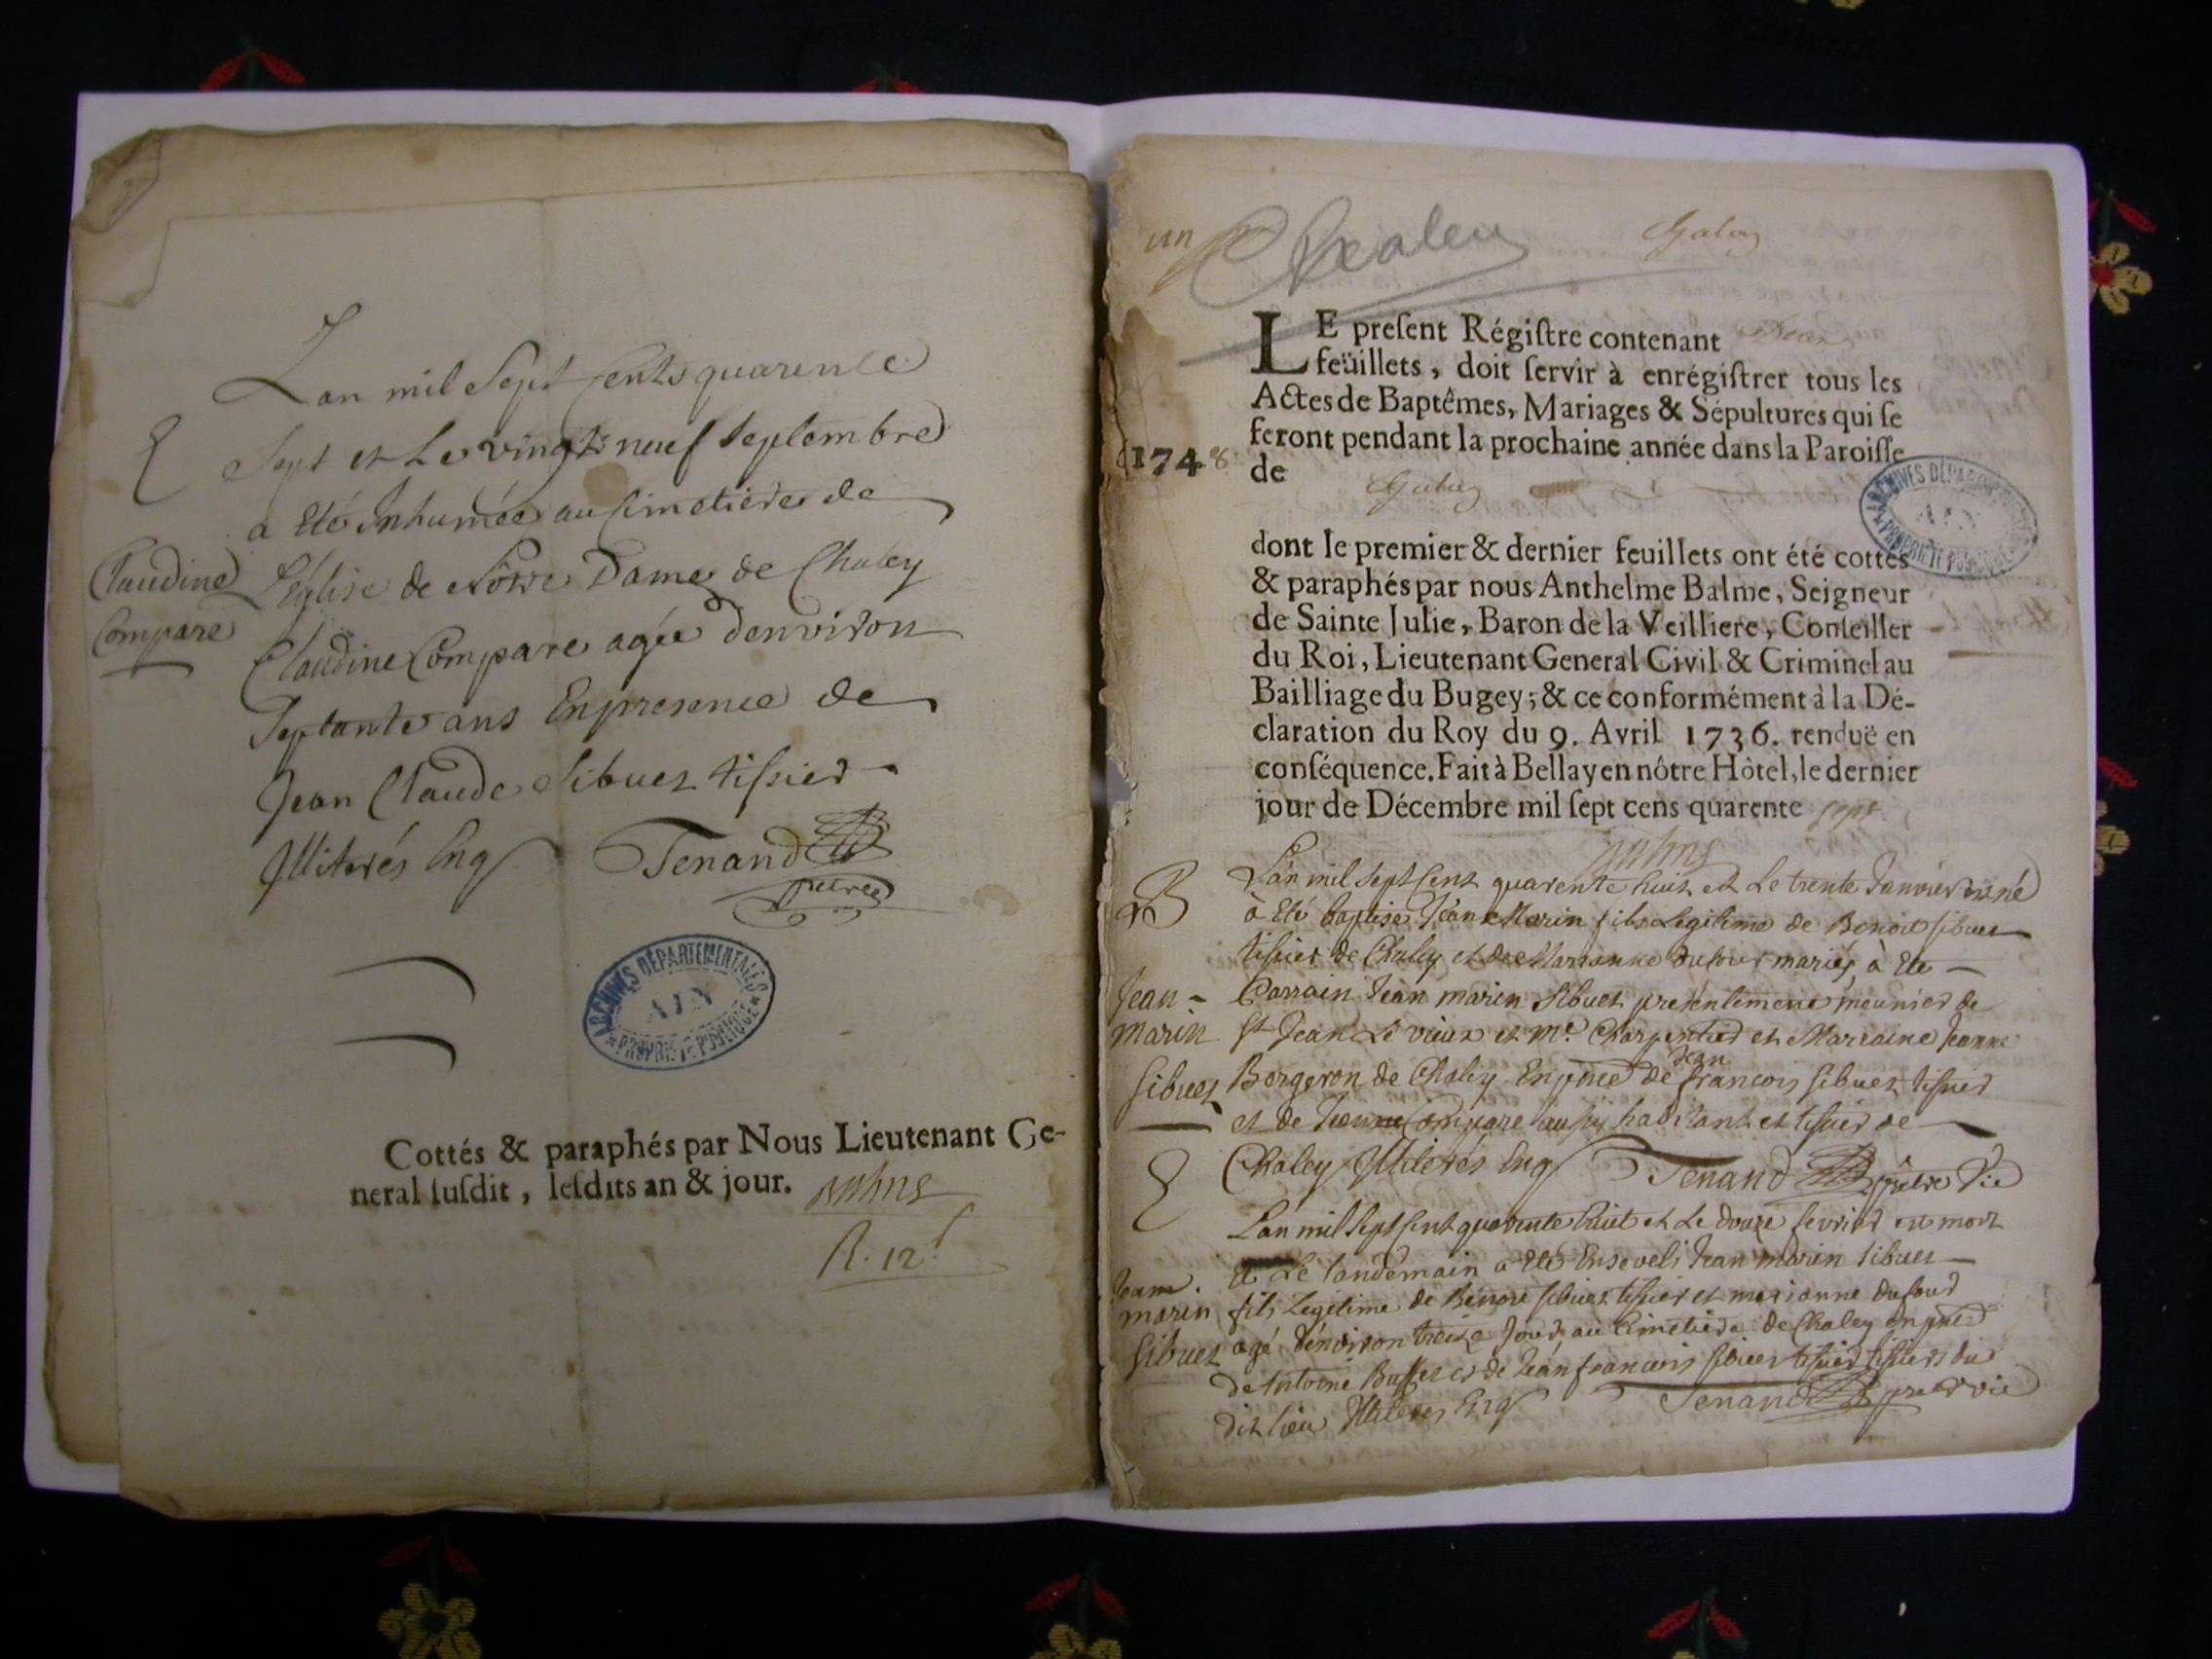 Lan mil Sept Cents quarente
Sept et Le vingt neuf Septembre
a Eté Inhumée au Cimetiere de
Claudine
Compare
L'Eglise de Nôtre Dame de Chaley
Claudine Compare agée d'environ
Septante ans En presence de
Jean Claude Sibuet tissier
Illiterés Enq Tenand
prêtre
ARCHIVES DÉPARTEMENTALES
AIN
PROPRIÉTÉ PUBLIQUE
Cottés & paraphés par Nous Lieutenant Ge-
neral susdit, lesdits an & jour.
R. 12
un
Chaley
Chaley
LE present Régistre contenant Deux
feüillets, doit servir à enrégistrer tous les
Actes de Baptêmes, Mariages & Sépultures qui se
feront pendant la prochaine année dans la Paroisse
1748
de Chaley
ARCHIVES DÉPARTEMENTALES
AIN
PROPRIÉTÉ PUBLIQUE
dont le premier & dernier feuillets ont été cottés
& paraphés par nous Anthelme Balme, Seigneur
de Sainte Julie, Baron de la Veilliere, Conseiller
du Roi, Lieutenant General Civil & Criminel au
Bailliage du Bugey; & ce conformément à la Dé-
claration du Roy du 9. Avril 1736. renduë en
conséquence. Fait à Bellay en nôtre Hòtel, le dernier
jour de Décembre mil sept cens quarente sept
B
L'an mil Sept Cent quarente huit et Le trente Janvier est né
à Eté baptisé Jean Marin fils Legitime de Benoit Sibuet
tissier de Chaley et de Marianne dufour mariés à Ete
Jean
Marin
Sibuet
Parrain Jean marin Sibuet presentement meunier de
St Jean Le vieux et Me. Charpentier et Marraine Jeanne
Bergeron de Chaley En pnce de Jean francois Sibuet tissier
et de Compare aussy habitant et tissier de
Chaley Illiterés Enq Tenand prêtre Vic
L'an mil Sept Cent quarente huit et Le douze fevrier est mort
et Le landemain a Eté Enseveli Jean marin Sibuet
Jean
marin
Sibuet
fils Legitime de Benoit Sibuet tissier et marianne dufour
agé d'environ treize Jour au Cimetiere de Chaley En pnce
de Antoine Buffet et de Jean francois Sibuet tissiers du
dit lieu Illiteres Enq Tenand pretre vic